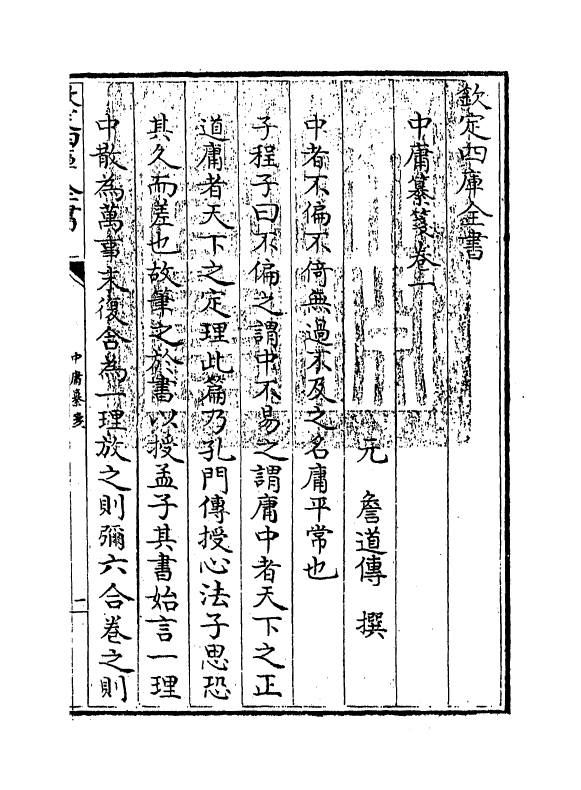 欽定四庫全書
中庸纂箋卷一
元 詹道傳 撰
中者不偏不倚無過不及之名庸平常也
子程子曰不偏之謂中不易之謂庸中者天下之正
道庸者天下之定理此篇乃孔門傳授心法子思恐
其久而差也故筆之於書以授孟子其書始言一理
中散為萬事末復合為一理放之則彌六合卷之則
中庸纂箋
一